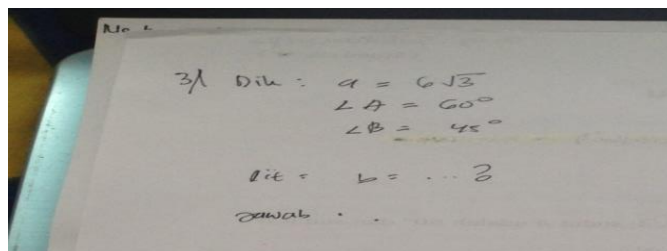 No
3/ Dik : a = 6√3
∠A = 60°
∠B = 45°
Dit = b = ... ?
Jawab . .